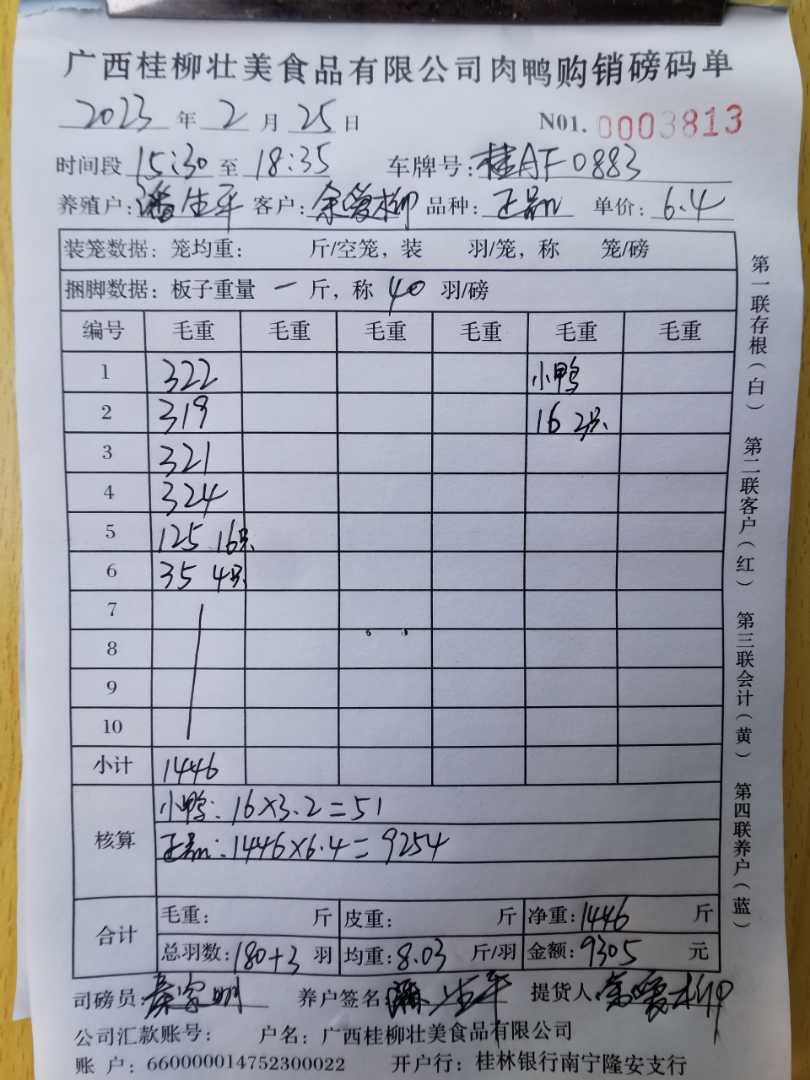 广西桂柳壮美食品有限公司肉鸭购销磅码单
2023 年 2 月 25 日 N01. 0003813
时间段 15:30 至 18:35 车牌号: 桂AF0883
养殖户: 潘生平 客户: 余爱柳 品种: 正品 单价: 6.4
装笼数据: 笼均重: 斤/空笼, 装 羽/笼, 称 笼/磅
捆脚数据: 板子重量 一 斤, 称 40 羽/磅
编号 毛重 毛重 毛重 毛重 毛重 毛重
1 322 小鸭
2 319 16 2只
3 321
4 324
5 125 16只
6 35 4只
7
8
9
10
小计 1446
核算 小鸭: 16×3.2=51
正品: 1446×6.4=9254
合计 毛重: 斤 皮重: 斤 净重: 1446 斤
总羽数: 180+3 羽 均重: 8.03 斤/羽 金额: 9305 元
司磅员 养户签名 潘生平 提货人
公司汇款账号: 户名: 广西桂柳壮美食品有限公司
账 户: 660000014752300022 开户行: 桂林银行南宁隆安支行
第一联存根(白) 第二联客户(红) 第三联会计(黄) 第四联养户(蓝)